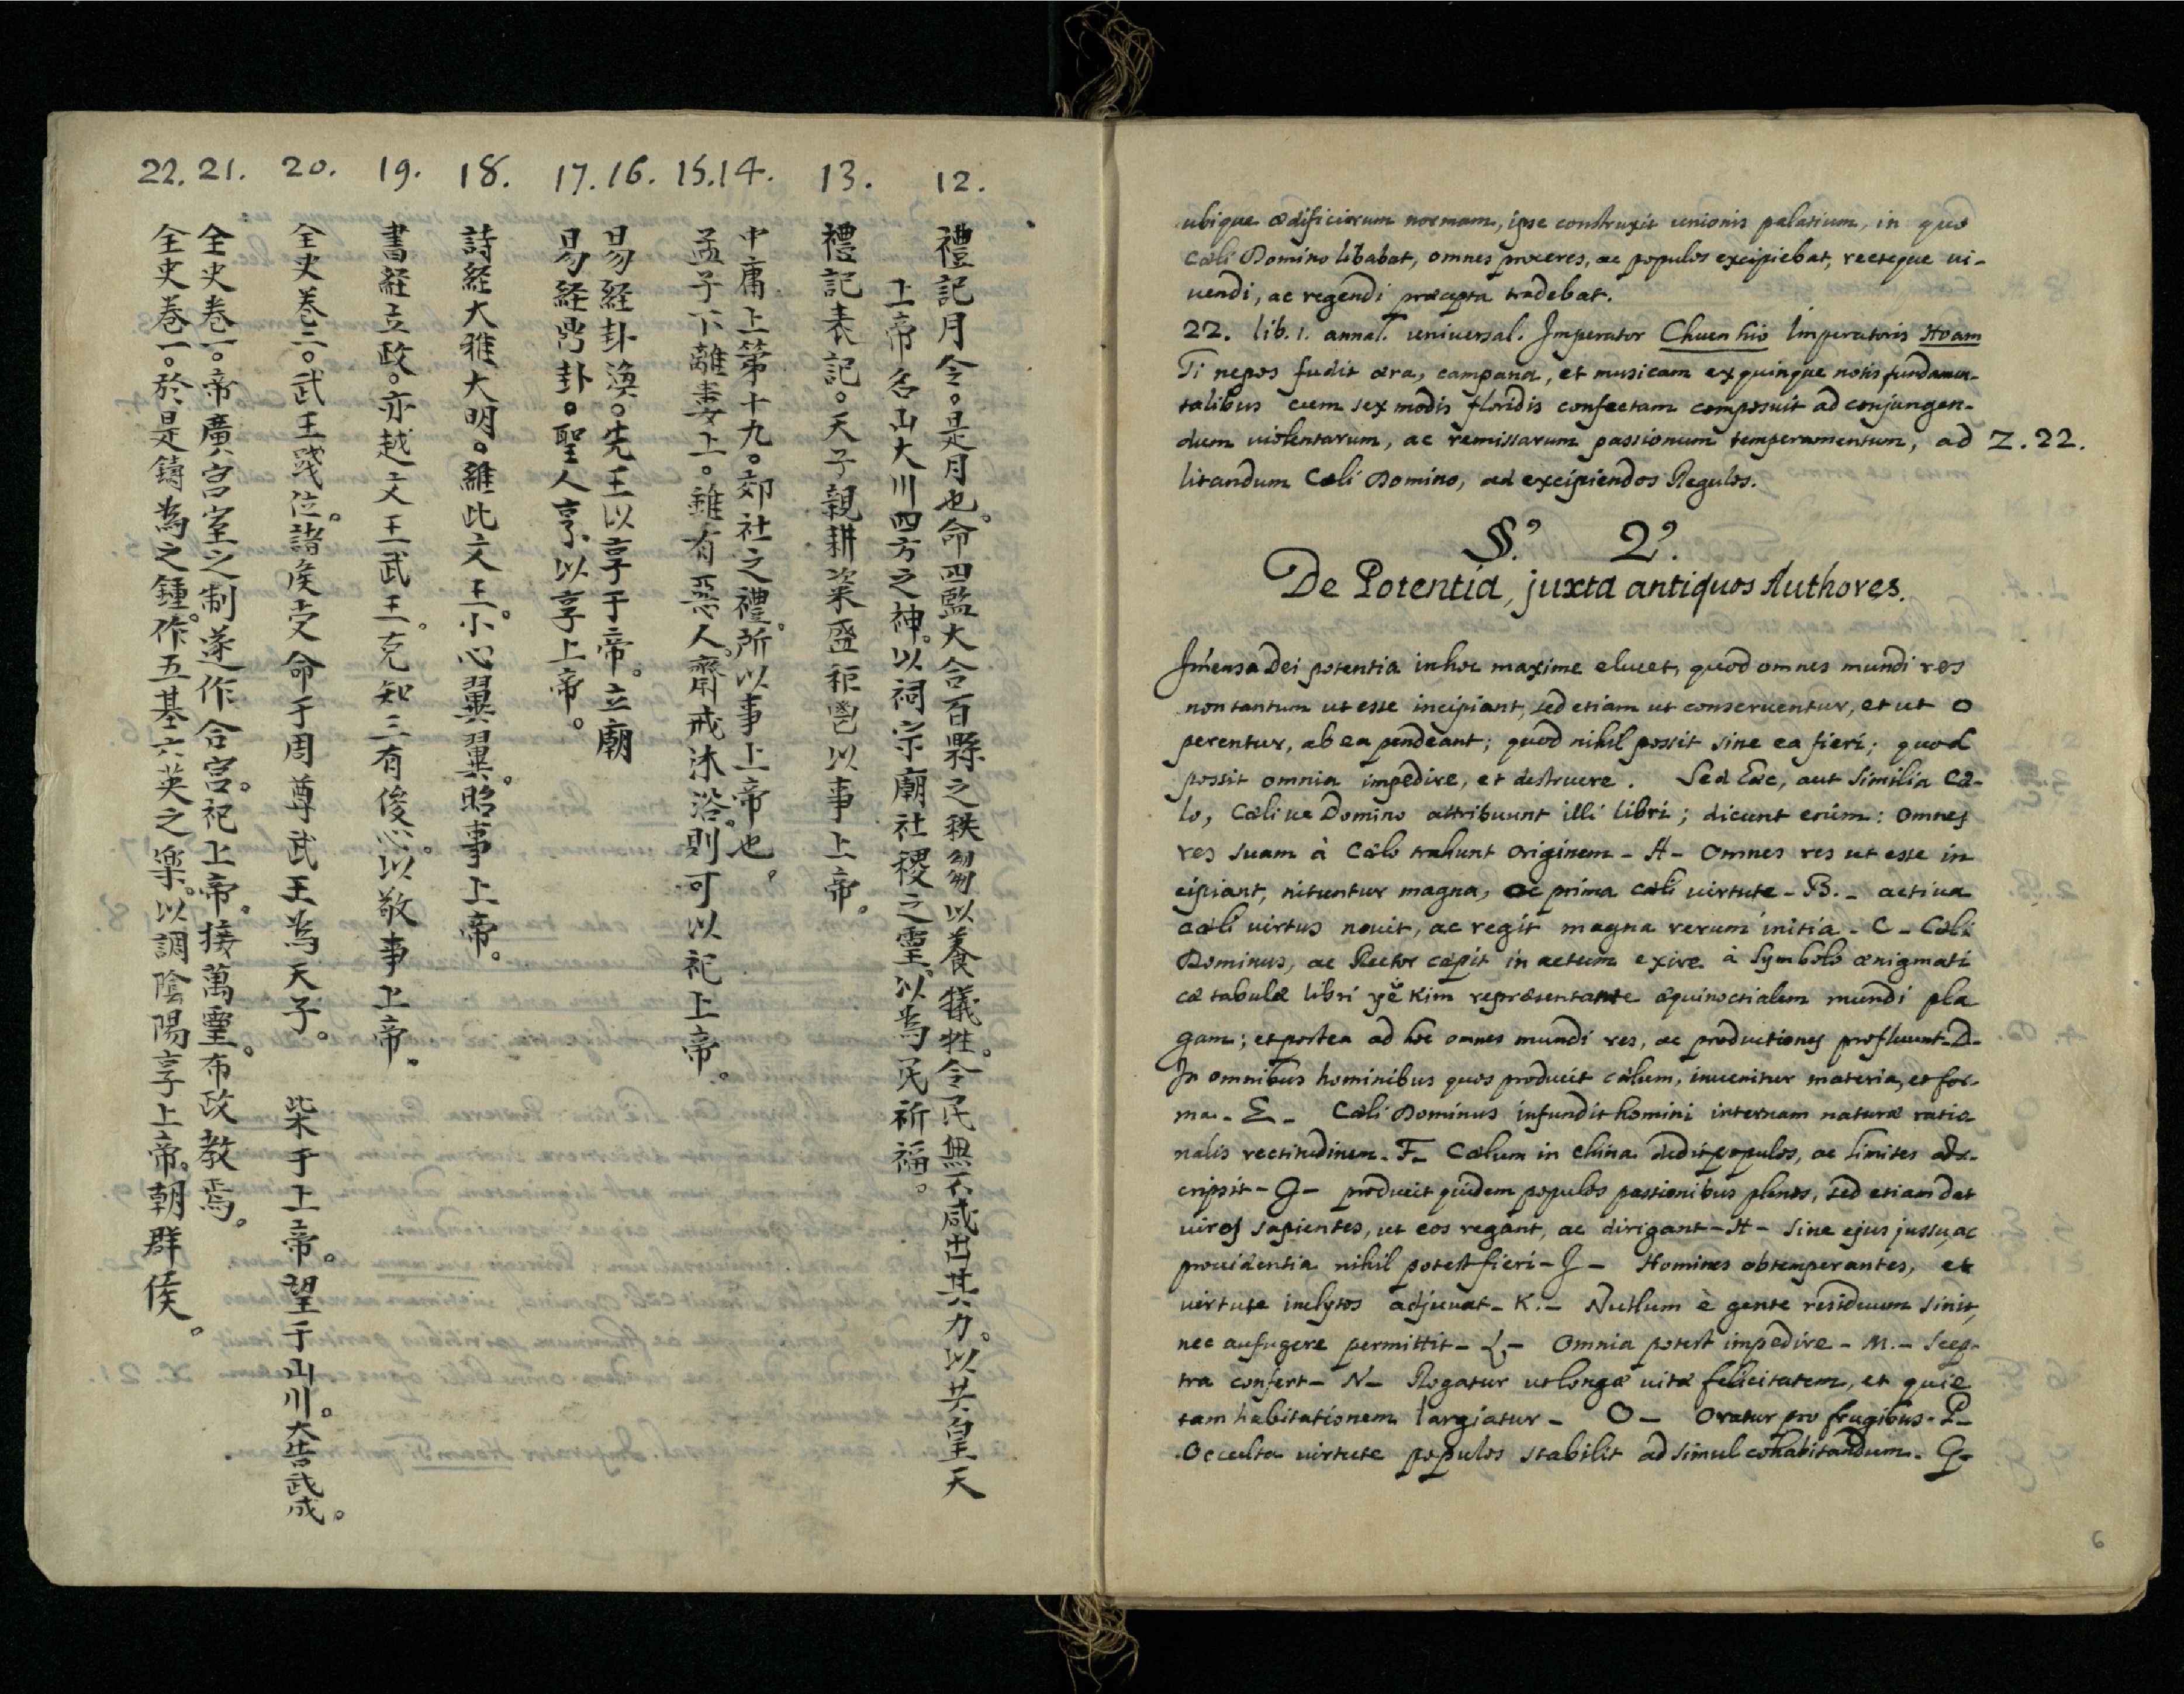 12.
禮記月令。是月也。命四監大合百縣之秩芻以養犧牲。令民無不咸出其力。以共皇天
上帝名山大川四方之神。以祠宗廟社稷之靈。以為民祈福。
13.
禮記表記。天子親耕粢盛秬鬯以事上帝。
14.
中庸上第十九。郊社之禮。所以事上帝也。
15.
孟子下離婁上。雖有惡人。齋戒沐浴。則可以祀上帝。
16.
易經卦渙。先王以享于帝。立廟
17.
易經鼎卦。聖人亨。以享上帝。
18.
詩経大雅大明。維此文王。小心翼翼。昭事上帝。
19.
書経立政。亦越文王武王。克知三有俊心。以敬事上帝。
20.
全史巻三。武王踐位。諸侯受命于周尊武王為天子。 柴于上帝。望于山川。大告武成。
21.
全史巻一。帝廣宮室之制遂作合宮。祀上帝。接萬靈。布政教焉。
22.
全史巻一。於是鑄為之鍾。作五基六英之樂。以調陰陽享上帝。朝群侯。
ubique ædificiorum normam, ipse construxit unionis palatium, in quo
Cæli Domino libabat, omnes proceres, ac populos excipiebat, recteque vi-
vendi, ac regendi præcepta tradebat.
22. lib. 1. annal. universal. Imperator Chuen hio Imperatoris Hoam
Ti nepos fudit æra, campana, et musicam ex quinque notis fundamen-
talibus cum sex modis floridis confectam composuit ad conjungen-
dum violentarum, ac remissarum passionum temperamentum, ad Z. 22.
litandum Cæli Domino, ad excipiendos Regulos.
§.º 2º.
De Potentia, juxta antiquos Authores.
Im̃ensa Dei potentia in hoc maxime elucet, quod omnes mundi res
non tantum ut esse incipiant, sed etiam ut conserventur, et ut o
perentur, ab ea pendeant; quod nihil possit sine ea fieri; quod
possit omnia impedire, et destruere. Sed hæc, aut similia Cæ-
lo, Cælive Domino attribuunt illi libri; dicunt enim: Omnes
res suam à Cælo trahunt originem - A - Omnes res ut esse in
cipiant, nituntur magna, ac prima cæli virtute - B. - activa
cæli virtus novit, ac regit magna rerum initia - C - Cæli
Dominus, ac Rector cæpit in actum exire à Symbolo ænigmati
cæ tabulæ libri yĕ Kim repræsentante æquinoctialem mundi pla
gam; et postea ad hoc omnes mundi res, ac productiones profluunt - D -
In omnibus hominibus quos producit cælum, invenitur materia, et for-
ma. - E - Cæli Dominus infundit homini internam naturæ ratio
nalis rectitudinem - F - Cælum in China dedit populos, ac limites ads-
cripsit - G - producit quidem populos passionibus plenos, sed etiam dat
viros sapientes, ut eos regant, ac dirigant - H - sine ejus jussu, ac
providentia nihil potest fieri - J - Homines obtemperantes, et
virtute inclytos adjuvat - K. - Nullum è gente residuum sinit,
nec aufugere permittit - L - Omnia potest impedire - M. - Scep-
tra confert - N - Rogatur ut longæ vitæ felicitatem, et quie
tam habitationem largiatur - O - Oratur pro frugibus - P -
Occulta virtute populos stabilit ad simul cohabitandum. Q -
6